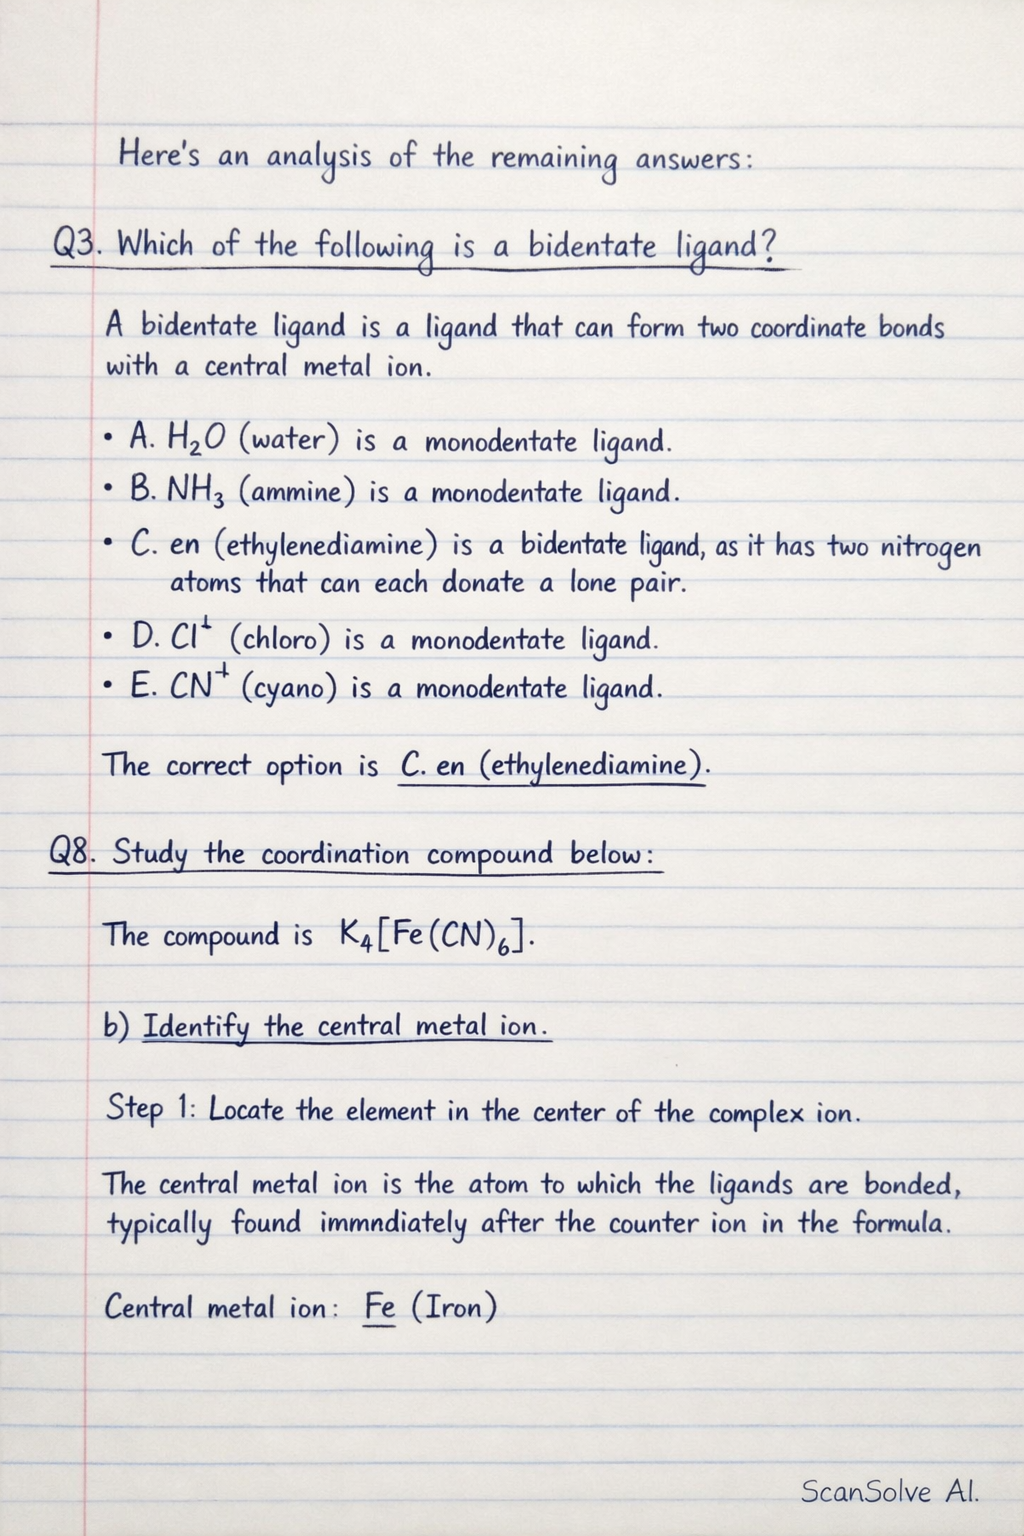 Here's an analysis of the remaining answers:
Q3. Which of the following is a bidentate ligand?
A bidentate ligand is a ligand that can form two coordinate bonds
with a central metal ion.
• A. H₂O (water) is a monodentate ligand.
• B. NH₃ (ammine) is a monodentate ligand.
• C. en (ethylenediamine) is a bidentate ligand, as it has two nitrogen
atoms that can each donate a lone pair.
• D. Cl⁺ (chloro) is a monodentate ligand.
• E. CN⁺ (cyano) is a monodentate ligand.
The correct option is C. en (ethylenediamine).
Q8. Study the coordination compound below:
The compound is K₄[Fe(CN)₆].
b) Identify the central metal ion.
Step 1: Locate the element in the center of the complex ion.
The central metal ion is the atom to which the ligands are bonded,
typically found immndiately after the counter ion in the formula.
Central metal ion: Fe (Iron)
ScanSolve AI.